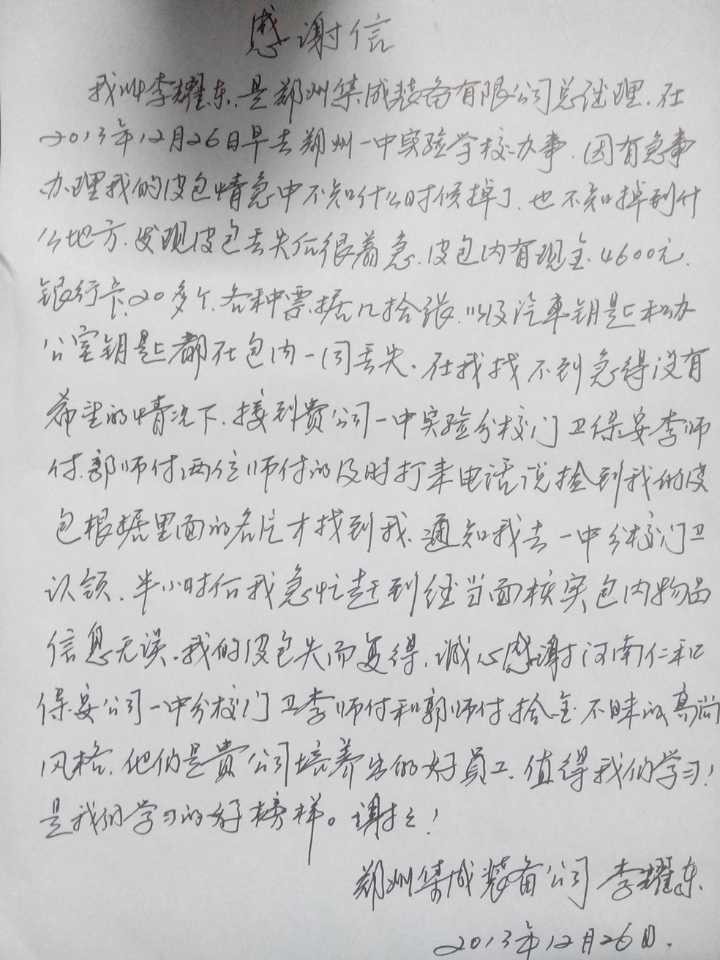 感谢信
我叫李耀东.是郑州集成装备有限公司总经理.在
2013年12月26日早去郑州一中实验学校办事.因有急事
办理我的皮包情急中不知什么时候掉了.也不知掉到什
么地方.发现皮包丢失后很着急.皮包内有现金.4600元.
银行卡.20多个.各种票.据几拾张.以及汽车钥匙和办
公室钥匙都在包内一同丢失.在我找不到急得没有
希望的情况下.接到贵公司一中实验分校门卫保安李师
付.郭师付两位师付的及时打来电话说捡到我的皮
包根据里面的名片才找到我.通知我去一中分校门卫
认领.半小时后我急忙赶到经当面核实包内物品
信息无误.我的皮包失而复得.诚心感谢河南仁和
保安公司一中分校门卫李师付和郭师付拾金不昧的高尚
风格.他们是贵公司培养出的好员工.值得我们学习!
是我们学习的好榜样。谢谢!
郑州集成装备公司 李耀东
2013年12月26日.